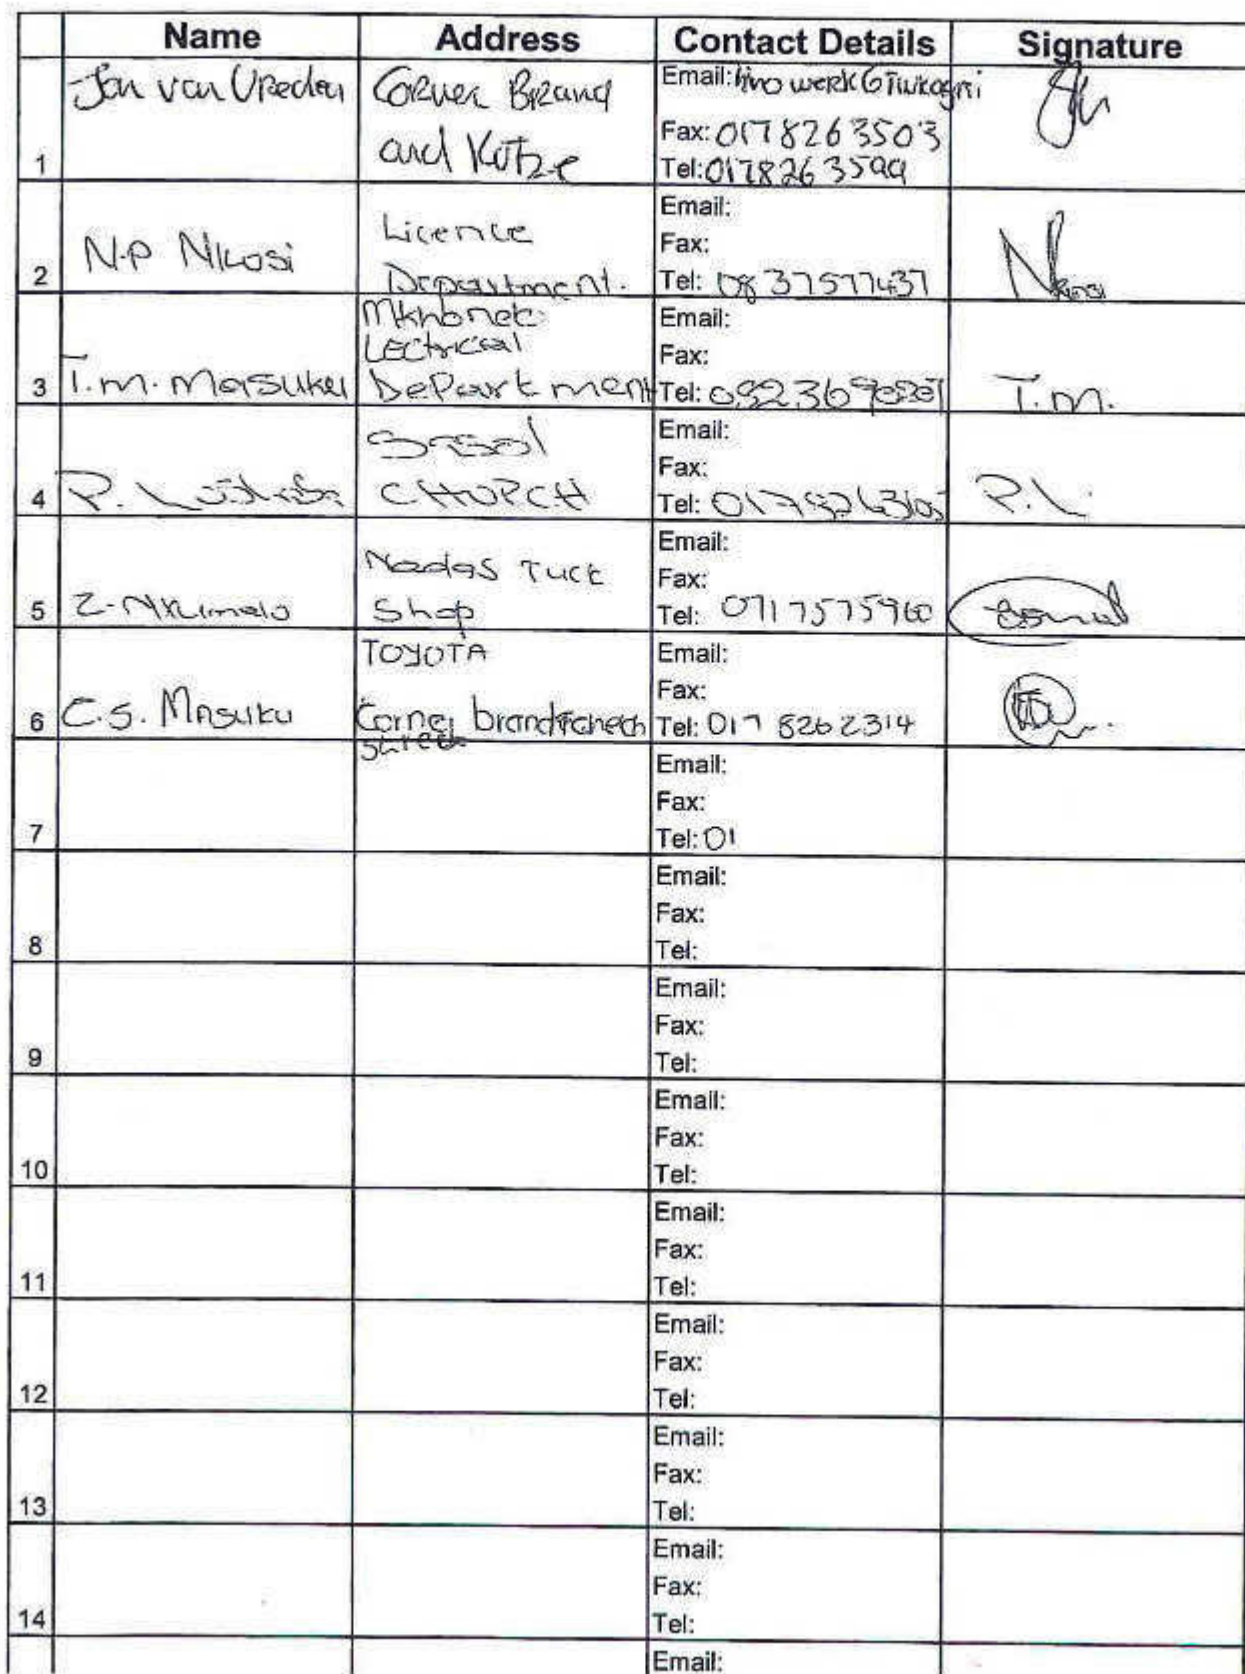 Name Address Contact Details Signature
1 Jan van Vreden Corner Brand and Kotze Email:
Fax: 0178263503
Tel: 0178263599
2 N.P Nkosi Licence Department. Email:
Fax:
Tel: 0837577437 Nkosi
3 T.M. Masuku Department Email:
Fax:
Tel: T.M.
4 P. Sasol CHURCH Email:
Fax:
Tel: P.L.
5 Z. Nkumalo Tuck Shop Email:
Fax:
Tel: 0717575960
6 C.S. Masuku TOYOTA Corner Email:
Fax:
Tel: 017 8262314
7 Email:
Fax:
Tel: 01
8 Email:
Fax:
Tel:
9 Email:
Fax:
Tel:
10 Email:
Fax:
Tel:
11 Email:
Fax:
Tel:
12 Email:
Fax:
Tel:
13 Email:
Fax:
Tel:
14 Email:
Fax:
Tel:
Email: